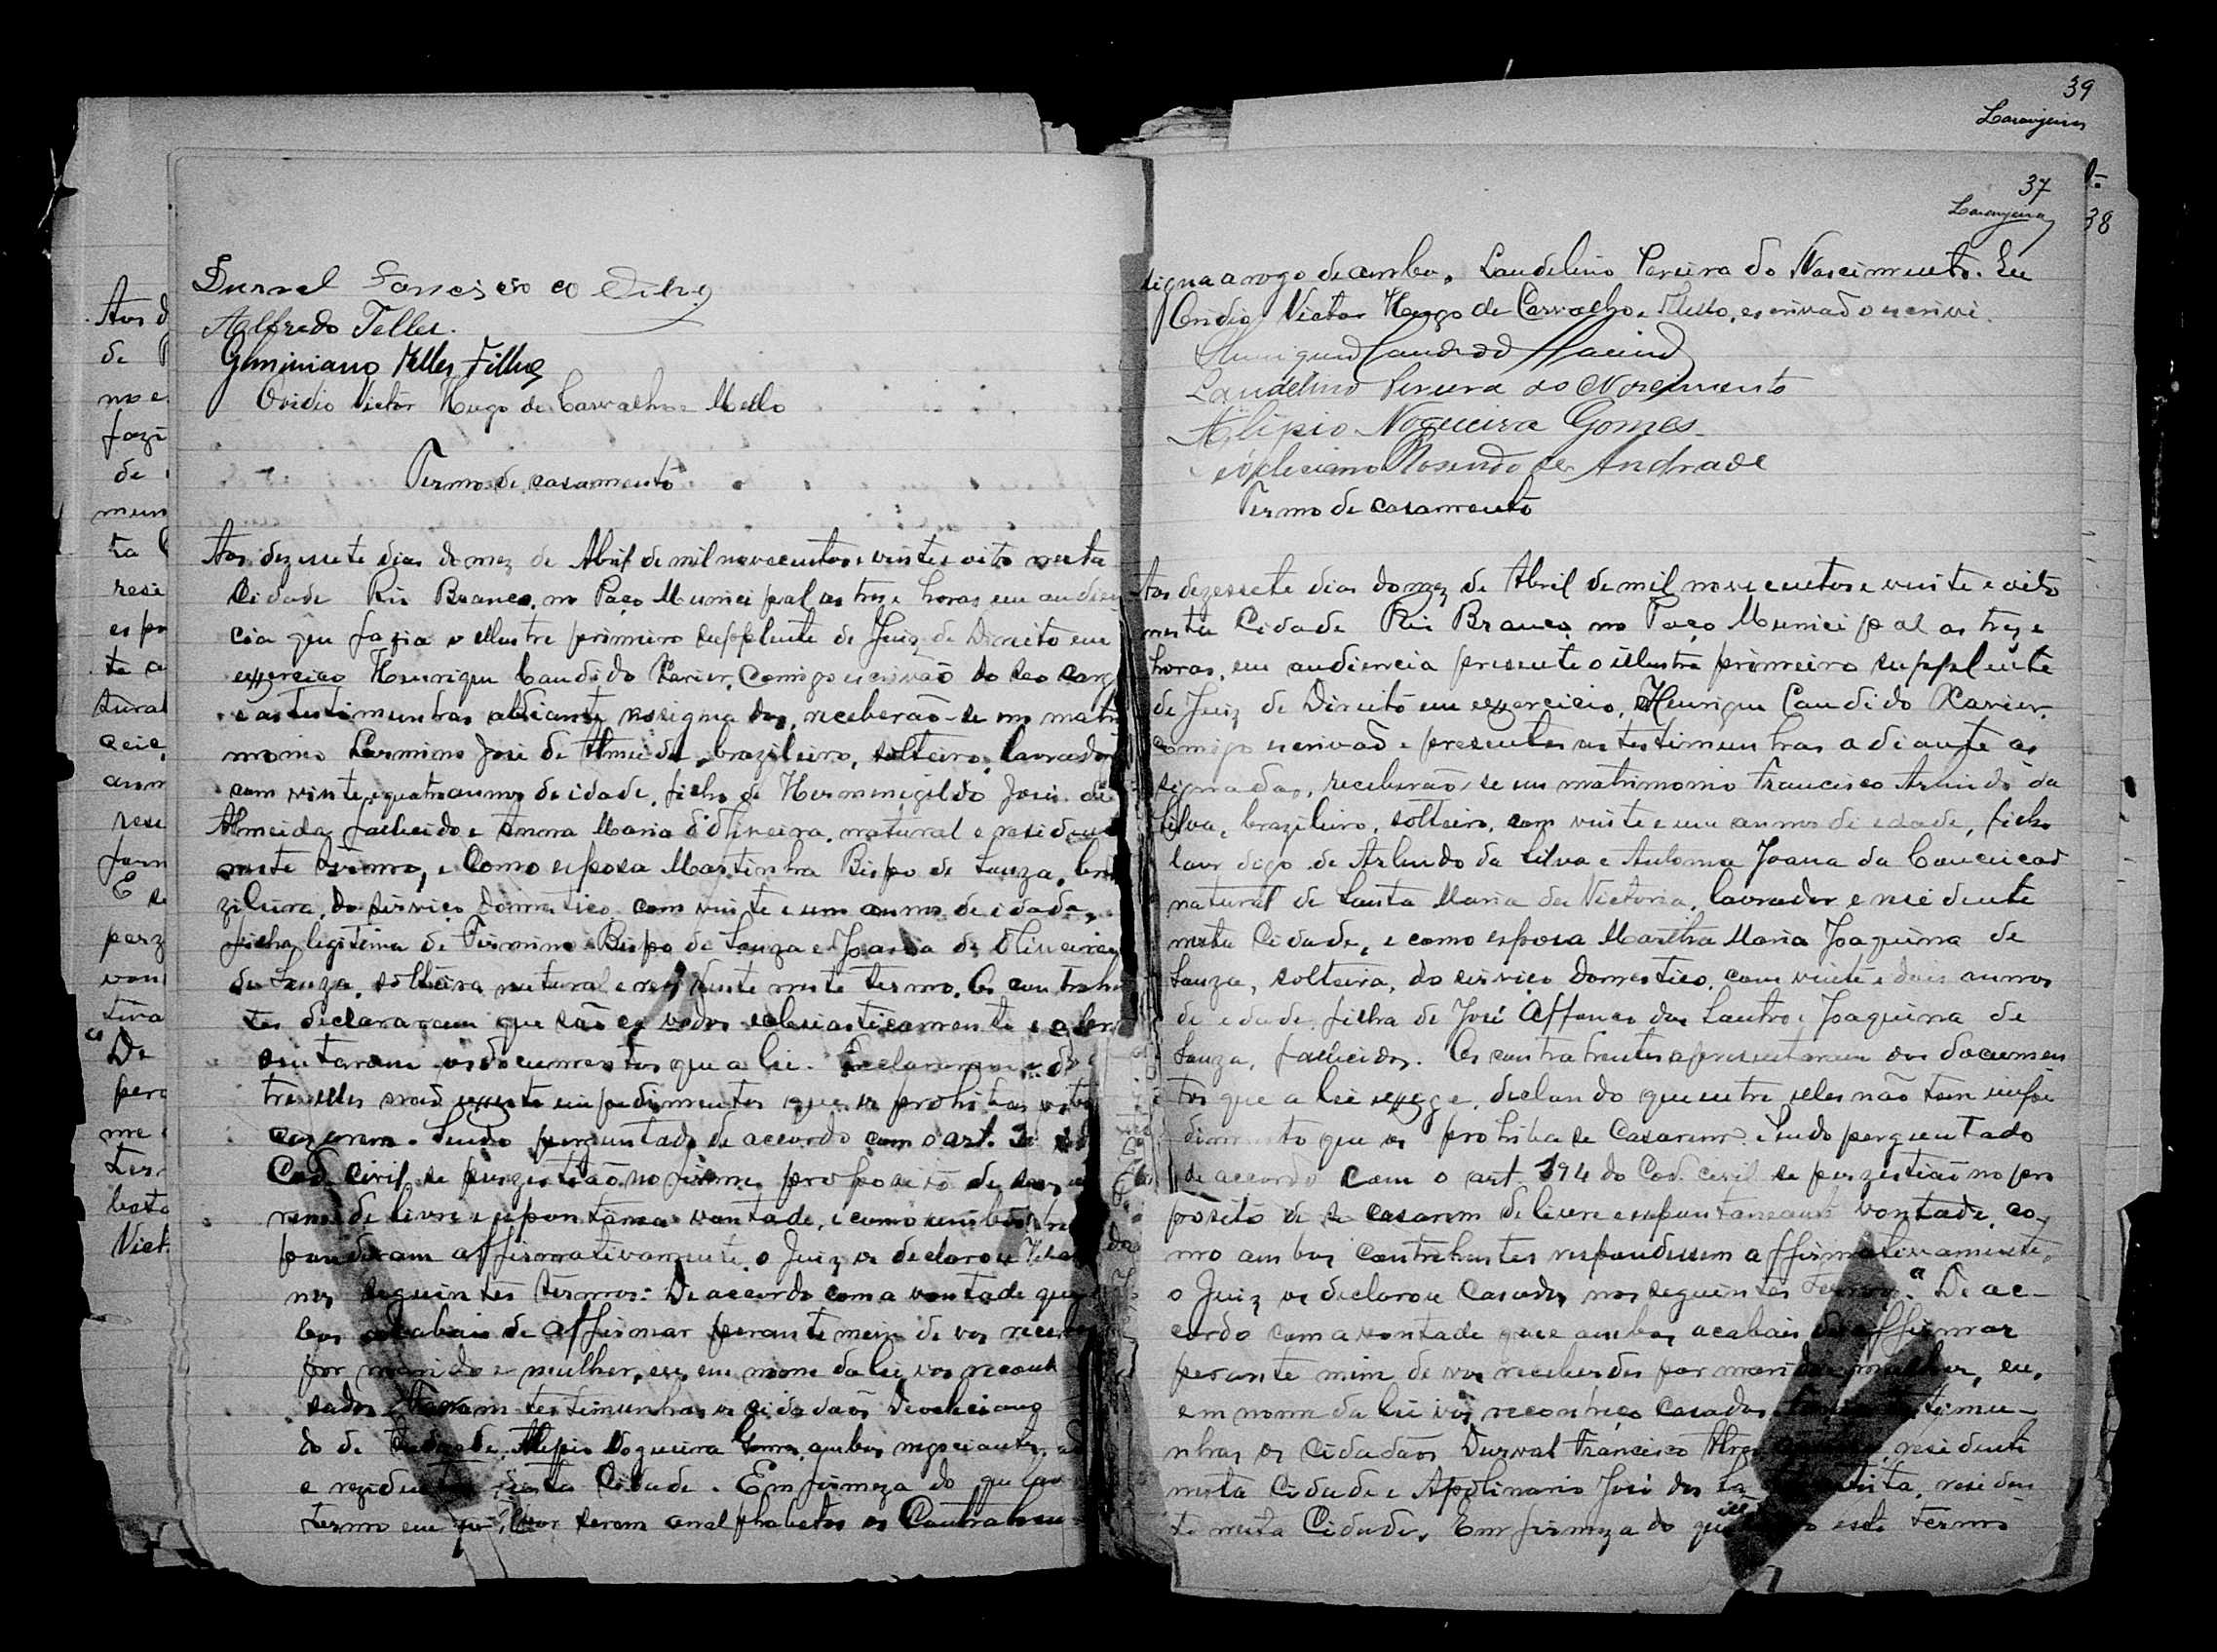 Alfredo Telles.
Geminiano Telles Filho
Ovidio Victor Hugo de Carvalho e Mello
Termo de casamento
Aos dezesete dias do mez de Abril de mil novecentos e vinte e oito nesta
Cidade Rio Branco, no Paço Municipal as treze horas em audien
cia que fazia o illustre primeiro supplente de Juiz de Direito em
exercicio Henrique Candido Xavier, comigo escrivão do seo cargo
e as testimunhas adiante assignadas, receberão-se em matri
monio Firmino José de Almeida, brazileiro, solteiro, lavrador
com vinte e quatro annos de idade, filho de Hermenegildo José de
Almeida, fallecido e Anna Maria d'Oliveira, natural e residente
neste termo, e como esposa Martinha Bispo de Souza, bra
zileira, do serviço domestico com vinte e um annos de idade,
filha legitima de Firmino Bispo de Souza e Joanna de Oliveira
de Souza, solteira natural e residente neste termo. Os contrahen
tes declararam que são casados eclesiasticamente e apre
sentaram os documentos que a lei. Declararam
tre elles não existe impedimentos que os prohibas
casarem. Sendo perguntado de acordo com o art.
Cod. Civil se persestião no firme proposito de
rem de livre e espontanea vontade, e como ambos res
ponderam affirmativamente, o Juiz os declarou
nos seguintes termos: De acordo com a vontade que
bos acabais de affirmar perante mim de vos receber
por marido e mulher, eu, em nome da lei, vos reconh
sados. Foram testimunhas os cidadãos Deocleciano
do de Andrade, Alipio Nogueira Gomes, ambos negociantes,
e residentes nesta Cidade. Em firmeza do que lav
termo em que, por serem analphabetos os Contrahen
39
Laranjeiras
37
Laranjeiras
38
signa a rogo de ambos, Laudelino Pereira do Nascimento. Eu
Ovidio Victor Hugo de Carvalho e Mello, escrivão escrivi.
Henrique Candido Xavier
Laudelino Pereira do Nascimento
Alipio Nogueira Gomes
Deocleciano Rosendo de Andrade
Termo de casamento
Aos dezessete dias do mez de Abril de mil novecentos e vinte e oito
nesta Cidade Rio Branco, no Paço Municipal as treze
horas, em audiencia presente o illustre primeiro supplente
de Juiz de Direito em exercicio, Henrique Candido Xavier,
comigo escrivão e presentes as testimunhas adiante as
signadas, receberão-se em matrimonio Francisco Arlindo da
Silva, brazileiro, solteiro, com vinte e um annos de edade, filho
lavr digo de Arlindo da Silva e Antonia Joana da Conceicão
natural de Santa Maria da Victoria, lavrador e residente
nesta Cidade, e como esposa Martha Maria Joaquina de
Souza, solteira, do serviço domestico, com vinte e dois annos
de edade, filha de José Affonso dos Santos e Joaquina de
Souza, fallecidos. Os contrahentes apresentaram dos documen
tos que a lei exige, declando que entre elles não tem impe
dimento que os prohiba se Casarem. Sendo perguntado
de accordo com o art. 194 do Cod. civil se perzestião no pro
posito de se casarem de livre e espontanea vontade, co
mo ambos contrahentes respondessem affirmativamente,
o Juiz os declarou Casados nos seguintes Termos: "De ac-
cordo com a vontade que ambos acabais de affirmar
perante mim de vos receberdes por marido e mulher, eu,
em nome da lei vos reconheço casados. Foram testimu-
nhas os Cidadãos Durval Francisco residente
nesta Cidade e Apolinario José dos residen
te nesta Cidade. Em firmeza do que este termo